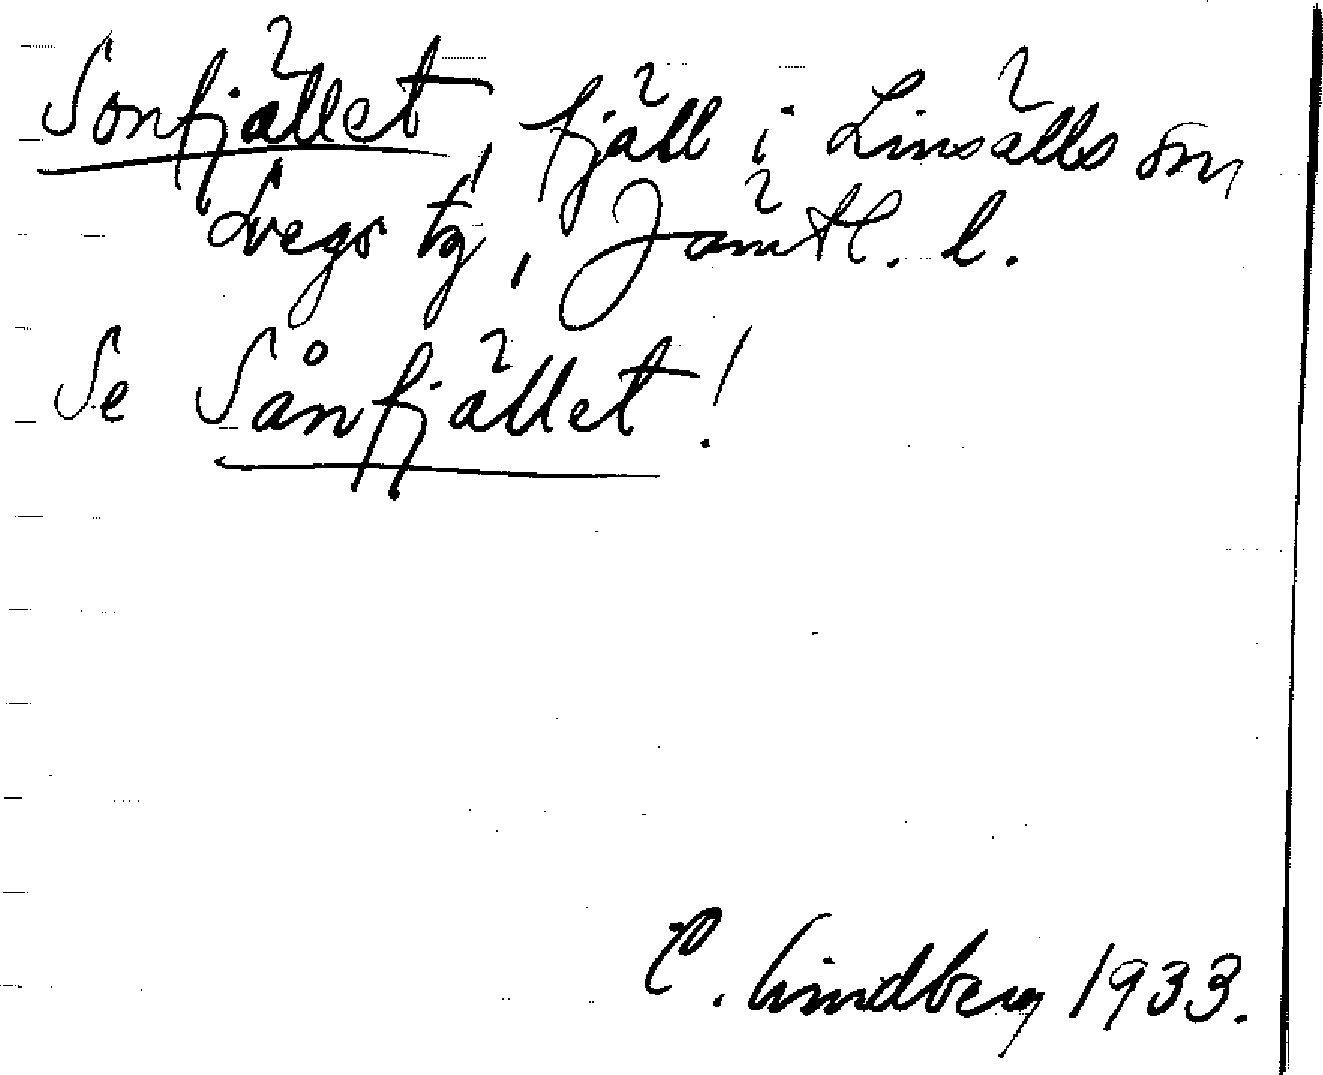 Sonfjället, fjäll i Linsälls sn,
Svegs tg, Jämtl. l.
Se Sånfjället!
C. Lindberg 1933.